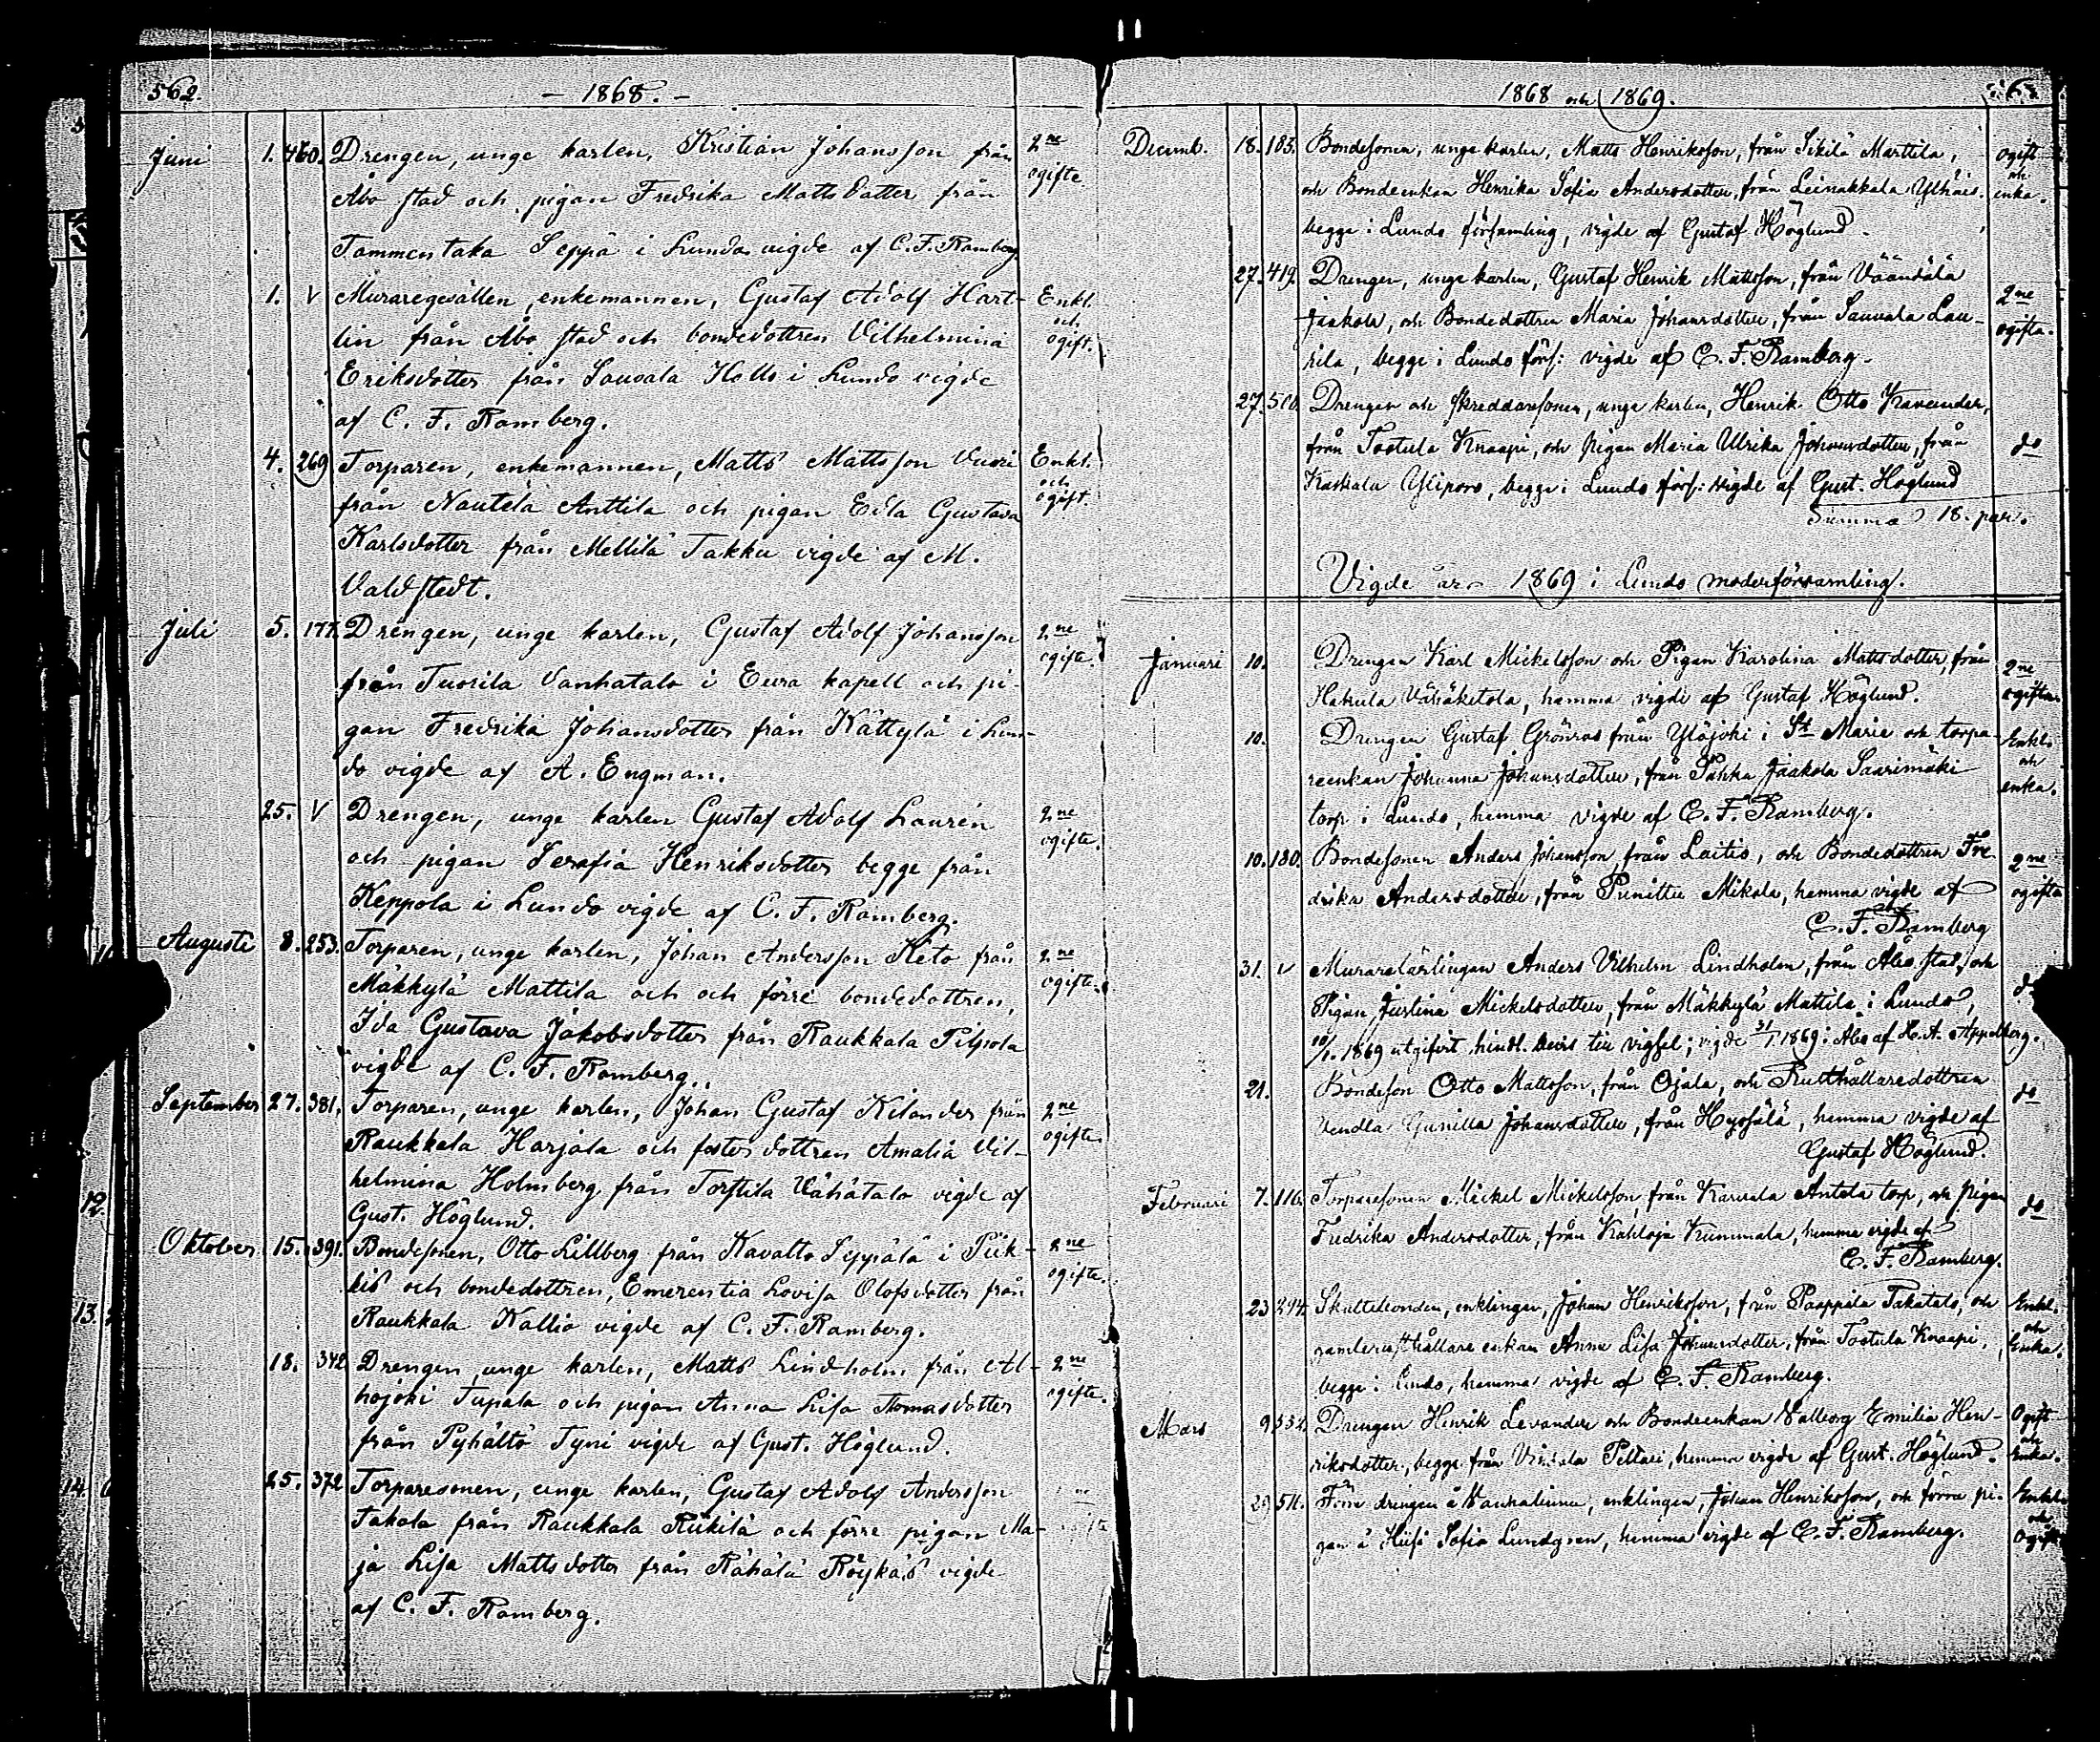 562.
– 1868. –
Juni 1. 460. Drengen, unge karlen, Kristian Johansson från 2ne ogifte.
Åbo stad och pigan Fredrika Matts datter från
Tammentaka Seppä i Lundo vigde af C. F. Ramberg
1. V Muraregesällen, enkemannen, Gustaf Adolf Hart- Enkl. och ogift.
lin från Åbo stad och bondedottren Vilhelmina
Eriksdotter från Sauvala Hollo i Lundo vigde
af C. F. Ramberg.
4. 269 Torparen, enkemannen, Matts Mattsson Vuori Enkl. och ogift.
från Nautela Anttila och pigan Edla Gustava
Karlsdotter från Mellilä Takku vigde af M.
Valdstedt.
Juli 5. 177. Drengen, unge karlen, Gustaf Adolf Johansson 2ne ogifte.
från Tuorila Vanhatalo i Eura kapell och pi-
gan Fredrika Johansdotter från Kättylä i Lun-
do vigde af A. Engman.
25. V Drengen, unge karlen Gustaf Adolf Laurén 2ne ogifte.
och pigan Serafia Henriksdotter begge från
Keppola i Lundo vigde af C. F. Ramberg.
Augusti 8. 253. Torparen, unge karlen, Johan Andersson Keto från 2ne ogifte.
Mäkkylä Mattila och och förre bondedottren,
Ida Gustava Jakobsdotter från Raukkala Pilpola
vigde af C. F. Ramberg.
September 27. 381. Torparen, unge karlen, Johan Gustaf Kilander från 2ne ogifte.
Raukkala Harjala och fosterdottren Amalia Vil-
helmina Holmberg från Torttila Vähätalo vigde af
Gust. Höglund.
Oktober 15. 391. Bondesonen, Otto Lillberg från Kavalto Seppälä i Piik- 2ne ogifte.
kis och bondedottren, Emerentia Lovisa Olofsdotter från
Raukkala Kallio vigde af C. F. Ramberg.
18. 342 Drengen, unge karlen, Matts Lindholm från Al- 2ne ogifte.
hojoki Tupala och pigan Anna Lisa Thomasdotter
från Pyhältö Tyni vigde af Gust. Höglund.
25. 372 Torparesonen, unge karlen, Gustaf Adolf Andersson
Takala från Raukkala Riikilä och förre pigan Ma-
ja Lisa Mattsdotter från Rähälä Röykäs vigde
af C. F. Ramberg.
1868 och 1869.
Decemb. 18. 183. Bondesonen, unge karlen, Matts Henriksson, från Sikilä Marttila, ogift och enka.
och Bondeenkan Henrika Sofia Andersdotter, från Leinakkala Ylhäis.
begge i Lundo församling, vigde af Gustaf Höglund.
27. 419. Drengen, unge karlen, Gustaf Henrik Mattsson, från Väänälä 2ne ogifta.
Jaakola, och Bondedottren Maria Johansdotter, från Sauvala Lau-
rila, begge i Lundo förs: vigde af C. F. Ramberg.
27. Drengen och skreddaresonen, unge karlen, Henrik Otto Kavander,
från Tostula Knaapi, och pigan Maria Ulrika Johansdotter, från do
Kaskala Ylipore, begge i Lundo förs: vigde af Gust. Höglund
Summa 18. par.
Vigde år 1869 i Lundo moderförsamling.
Januari 10. Drengen Karl Mickelsson och Pigan Karolina Mattsdotter, från 2ne ogifta.
Hakula Vähäketola, hemma vigde af Gustaf Höglund.
10. Drengen Gustaf Grönros från Yläjoki i St Marie och torpa- Enkl. och enka.
reenkan Johanna Johansdotter, från Pahka Jaakola Saarimäki
torp i Lundo, hemma vigde af C. F. Ramberg.
10. 180. Bondesonen Anders Johansson från Laitis, och Bondedottren Fre- 2ne ogifta
drika Andersdotter, från Punittu Mikola, hemma vigde af
C. F. Ramberg
31. V Murarelärlingen Anders Vilhelm Lindholm, från Åbo stad, och do
Pigan Justina Mickelsdotter, från Mäkkylä Mattila i Lundo,
10/1. 1869 utgifvit hindl. bevis till vigsel; vigde 31/1. 1869 i Åbo af K. A. Appelberg.
21. Bondeson Otto Mattsson, från Ojala, och Rusthållaredottren do
Vendla Gunilla Johansdotter, från Hypöjälä, hemma vigde af
Gustaf Höglund.
Februari 7. 116. Torparesonen Mickel Mickelsson, från Karvala Antola torp, och pigan do
Fredrika Andersdotter, från Kahloja Kummala, hemma vigde af
C. F. Ramberg.
23 294. Skattebonden, enklingen, Johan Henriksson, från Paappila Takatalo, och Enkl. och Enka.
rusthållare enkan Anna Lisa Johansdotter, från Tostula Knaapi,
begge i Lundo, hemma vigde af C. F. Ramberg.
Mars 9 532. Drengen Henrik Levander och Bondeenkan Valborg Emilia Hen- Ogift och Enka.
riksdotter, begge från Vintala Peltari, hemma vigde af Gust. Höglund.
29 511. Förre drengen å Vanhalinna, enklingen, Johan Henriksson, och förra pi- Enkl. och Ogift
gan å Hiisi Sofia Lundgren, hemma vigde af C. F. Ramberg.